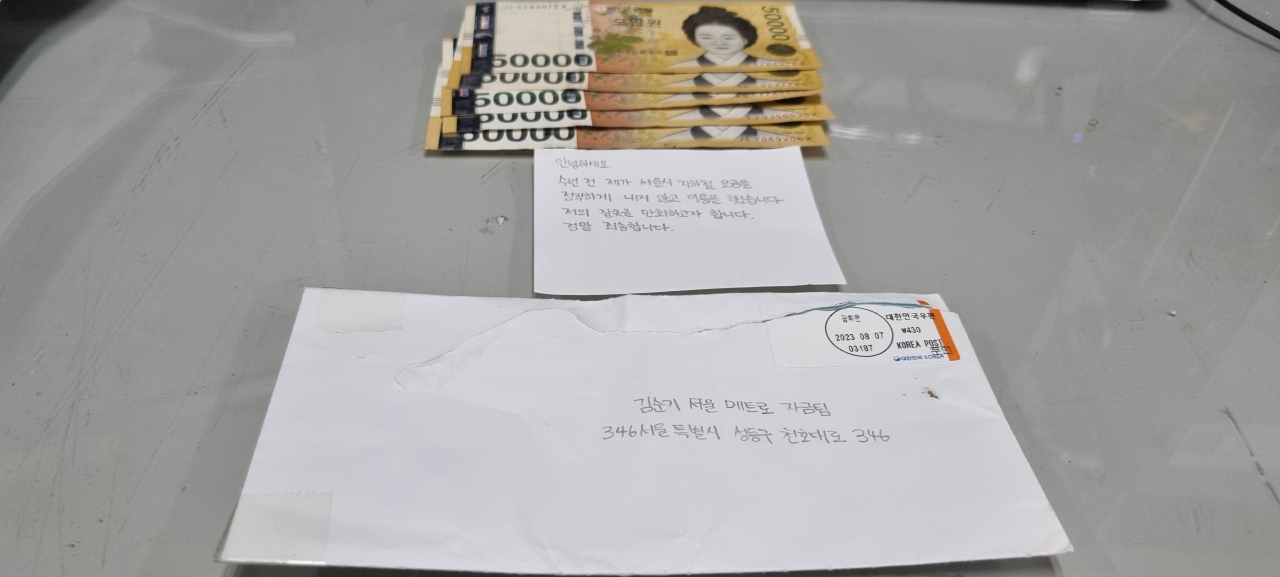 50000
오만원
50000
50000
50000
50000
50000
안녕하세요
수년 전 제가 서울시 지하철 요금을
정직하게 내지 않고 이용을 했습니다
저의 잘못을 만회하고자 합니다.
정말 죄송합니다.
광화문
2023 08 07
03187
대한민국우표
₩430
KOREA POST
대한민국 KOREA
김순기 서울 메트로 자금팀
346서울특별시 성동구 천호대로 346